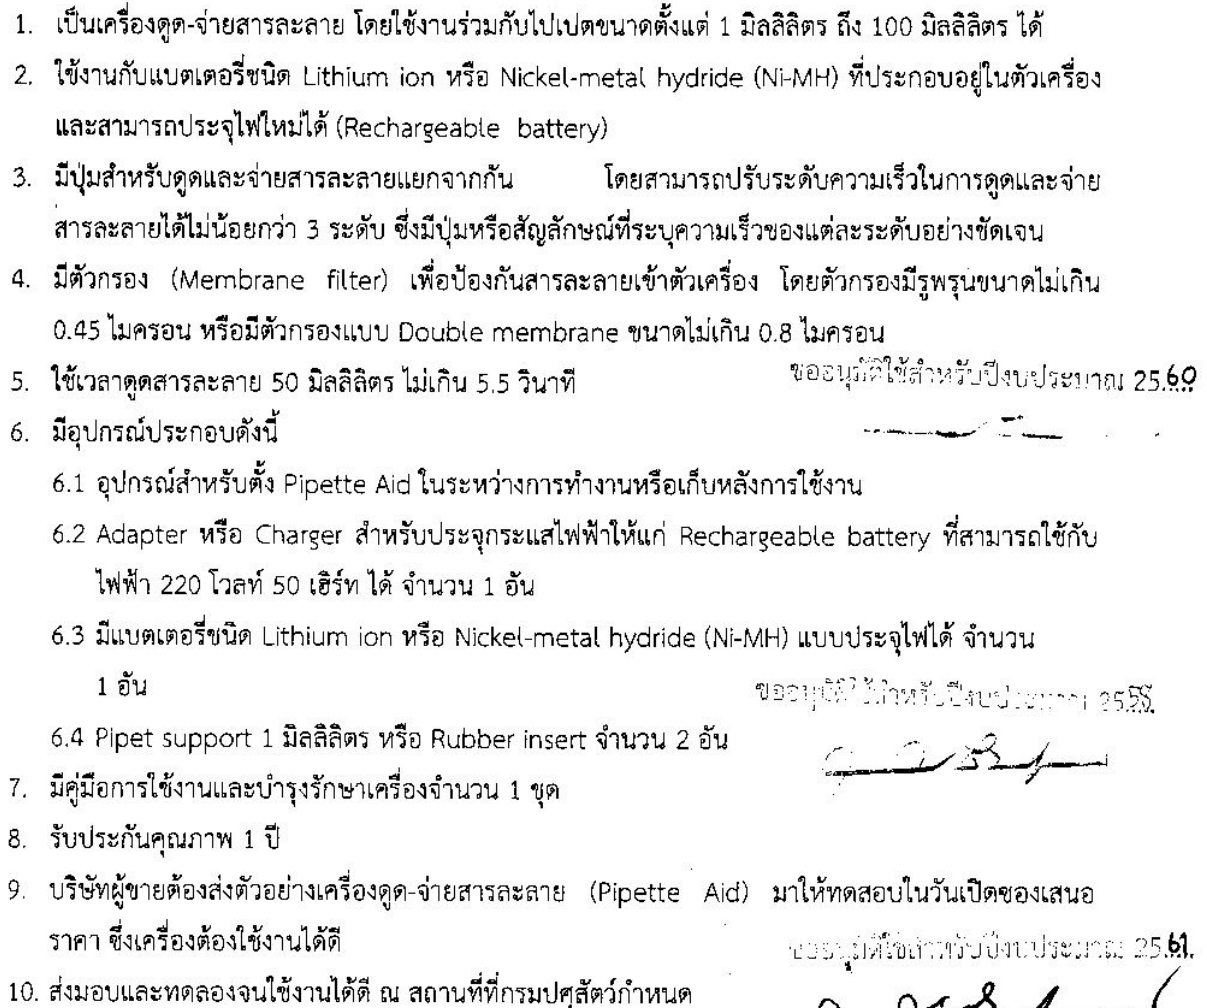 1. เป็นเครื่องดูด-จ่ายสารละลาย โดยใช้งานร่วมกับไปเปตขนาดตั้งแต่ 1 มิลลิลิตร ถึง 100 มิลลิลิตร ได้
2. ใช้งานกับแบตเตอรี่ชนิด Lithium ion หรือ Nickel-metal hydride (Ni-MH) ที่ประกอบอยู่ในตัวเครื่อง
และสามารถประจุไฟใหม่ได้ (Rechargeable battery)
3. มีปุ่มสำหรับดูดและจ่ายสารละลายแยกจากกัน โดยสามารถปรับระดับความเร็วในการดูดและจ่าย
สารละลายได้ไม่น้อยกว่า 3 ระดับ ซึ่งมีปุ่มหรือสัญลักษณ์ที่ระบุความเร็วของแต่ละระดับอย่างชัดเจน
4. มีตัวกรอง (Membrane filter) เพื่อป้องกันสารละลายเข้าตัวเครื่อง โดยตัวกรองมีรูพรุนขนาดไม่เกิน
0.45 ไมครอน หรือมีตัวกรองแบบ Double membrane ขนาดไม่เกิน 0.8 ไมครอน
5. ใช้เวลาดูดสารละลาย 50 มิลลิลิตร ไม่เกิน 5.5 วินาที
ขออนุมัติใช้สำหรับปีงบประมาณ 2560
6. มีอุปกรณ์ประกอบดังนี้
6.1 อุปกรณ์สำหรับตั้ง Pipette Aid ในระหว่างการทำงานหรือเก็บหลังการใช้งาน
6.2 Adapter หรือ Charger สำหรับประจุกระแสไฟฟ้าให้แก่ Rechargeable battery ที่สามารถใช้กับ
ไฟฟ้า 220 โวลท์ 50 เฮิร์ท ได้ จำนวน 1 อัน
6.3 มีแบตเตอรี่ชนิด Lithium ion หรือ Nickel-metal hydride (Ni-MH) แบบประจุไฟได้ จำนวน
1 อัน
ขออนุมัติใช้สำหรับปีงบประมาณ 25
6.4 Pipet support 1 มิลลิลิตร หรือ Rubber insert จำนวน 2 อัน
7. มีคู่มือการใช้งานและบำรุงรักษาเครื่องจำนวน 1 ชุด
8. รับประกันคุณภาพ 1 ปี
9. บริษัทผู้ขายต้องส่งตัวอย่างเครื่องดูด-จ่ายสารละลาย (Pipette Aid) มาให้ทดสอบในวันเปิดซองเสนอ
ราคา ซึ่งเครื่องต้องใช้งานได้ดี
ขออนุมัติใช้สำหรับปีงบประมาณ 2561
10. ส่งมอบและทดลองจนใช้งานได้ดี ณ สถานที่ที่กรมปศุสัตว์กำหนด